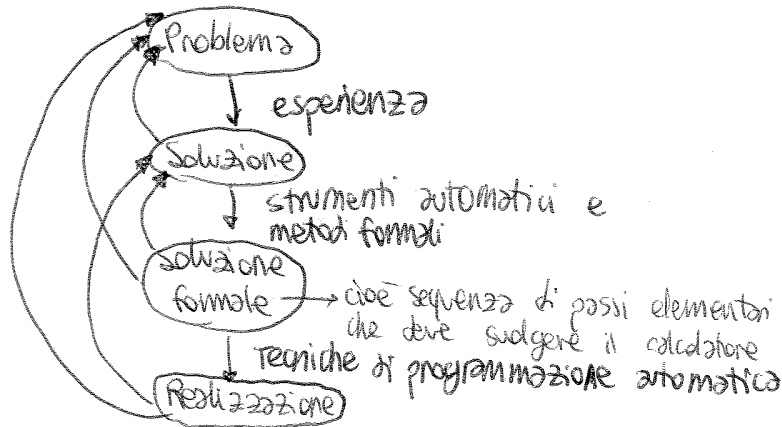 Problema
esperienza
Soluzione
strumenti automatici e
metodi formali
soluzione
formale → cioè sequenza di passi elementari
che deve svolgere il calcolatore
Tecniche di programmazione automatica
Realizzazione